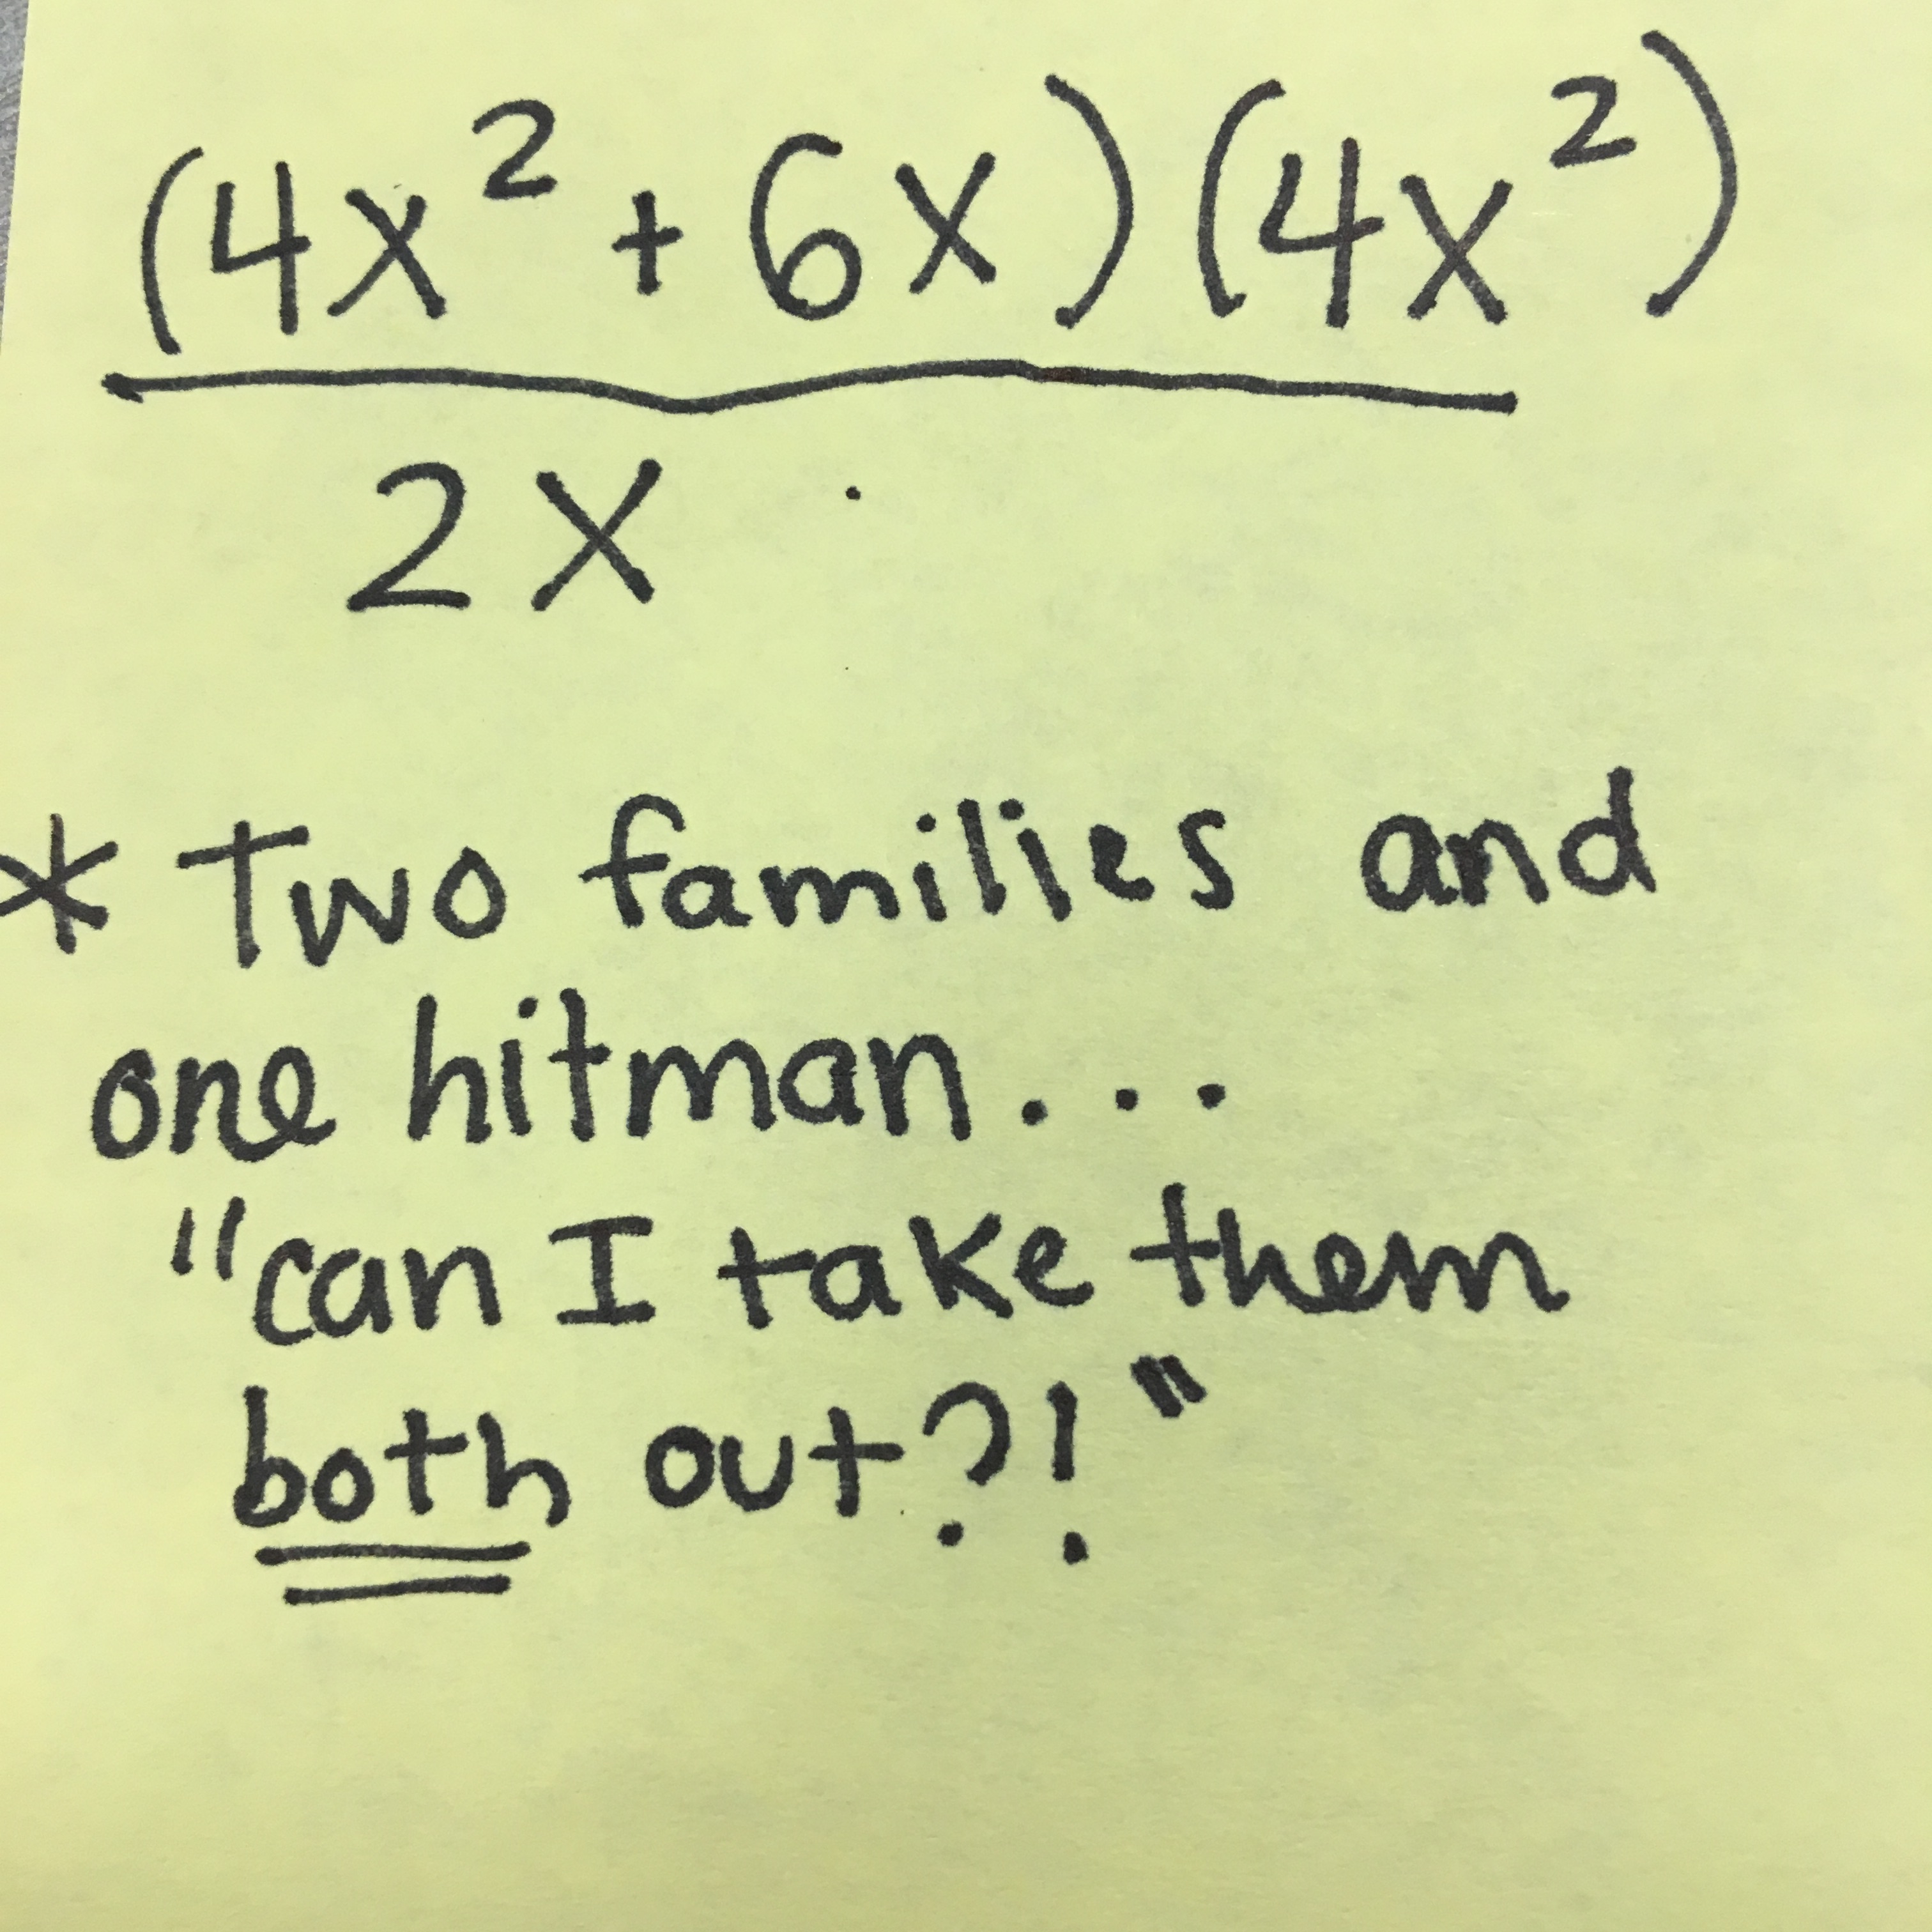 (4x² + 6x)(4x²)
2x
* Two families and
one hitman...
"can I take them
both out?!"